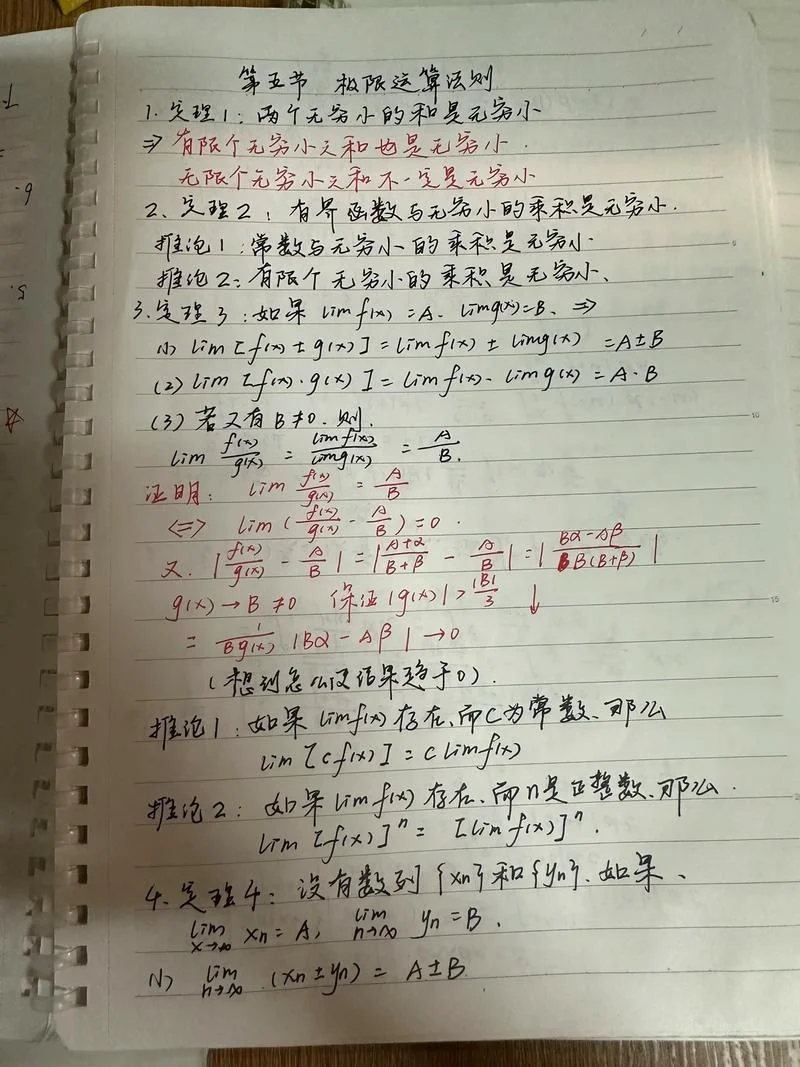 第五节 极限运算法则
1. 定理1: 两个无穷小的和是无穷小
⇒ 有限个无穷小之和也是无穷小.
无限个无穷小之和不一定是无穷小
2. 定理2: 有界函数与无穷小的乘积是无穷小.
推论1: 常数与无穷小的乘积是无穷小.
推论2: 有限个无穷小的乘积是无穷小.
3. 定理3: 如果 lim f(x) = A. lim g(x) = B. ⇒
(1) lim [f(x) ± g(x)] = lim f(x) ± lim g(x) = A±B
(2) lim [f(x)·g(x)] = lim f(x)· lim g(x) = A·B
(3) 若又有B≠0. 则.
lim f(x)/g(x) = lim f(x)/lim g(x) = A/B.
证明: lim f(x)/g(x) = A/B
⇔ lim (f(x)/g(x) - A/B) = 0.
又. |f(x)/g(x) - A/B| = |(A+α)/(B+β) - A/B| = |(Bα-Aβ)/(B(B+β))|
g(x) → B ≠ 0 保证 |g(x)| > |B|/3 ↓
= 1/(Bg(x)) |Bα - Aβ| → 0
(想到怎么 结果趋于0).
推论1: 如果 lim f(x) 存在, 而C为常数、那么
lim [cf(x)] = c lim f(x)
推论2: 如果 lim f(x) 存在、而n是正整数、那么.
lim [f(x)]ⁿ = [lim f(x)]ⁿ.
4. 定理4: 设有数列 {xn} 和 {yn}、如果、
lim x→∞ xn = A, lim n→∞ yn = B.
(1) lim n→∞ (xn ± yn) = A±B
5.
6.